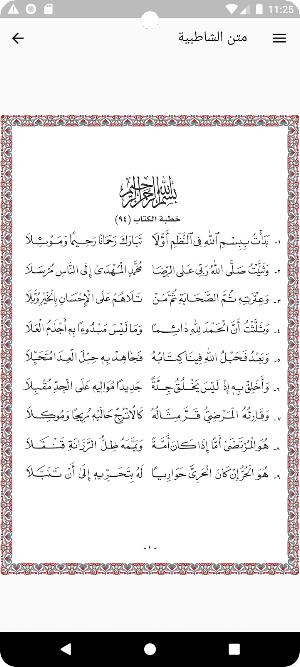 11:25
متن الشاطبية
بسم الله الرحمن الرحيم
خطبة الكتاب (٩٤)
١- بَدَأْتُ بِبِسْمِ اللَّهِ فِي النَّظْمِ أَوَّلَا تَبَارَكَ رَحْمَانًا رَحِيمًا وَمَوْئِلَا
٢- وَثَنَّيْتُ صَلَّى اللَّهُ رَبِّي عَلَى الرِّضَا مُحَمَّدٍ الْمُهْدَى إِلَى النَّاسِ مُرْسَلَا
٣- وَعِتْرَتِهِ ثُمَّ الصَّحَابَةِ ثُمَّ مَنْ تَلَاهُمْ عَلَى الْإِحْسَانِ بِالْخَيْرِ وُبَّلَا
٤- وَثَلَّثْتُ أَنَّ الْحَمْدَ لِلَّهِ دَائِمًا وَمَا لَيْسَ مَبْدُوءًا بِهِ أَجْذَمُ الْعَلَا
٥- وَبَعْدُ فَحَبْلُ اللَّهِ فِينَا كِتَابُهُ فَجَاهِدْ بِهِ حِبْلَ الْعِدَا مُتَحَبِّلَا
٦- وَأَخْلِقْ بِهِ إِذْ لَيْسَ يَخْلُقُ جِدَّةً جَدِيدًا مُوَالِيهِ عَلَى الْجِدِّ مُقْبِلَا
٧- وَقَارِئُهُ الْمَرْضِيُّ قَرَّ مِثَالُهُ كَالْاتْرُجِّ حَالَيْهِ مُرِيحًا وَمُوكِلَا
٨- هُوَ الْمُرْتَضَى أَمًّا إِذَا كَانَ أُمَّةً وَيَمَّمَهُ ظِلُّ الرَّزَانَةِ قَنْقَلَا
٩- هُوَ الْحُرُّ إِنْ كَانَ الْحَرِيَّ حَوَارِيًا لَهُ بِتَحَرِّيهِ إِلَى أَنْ تَنَبَّلَا
-١-